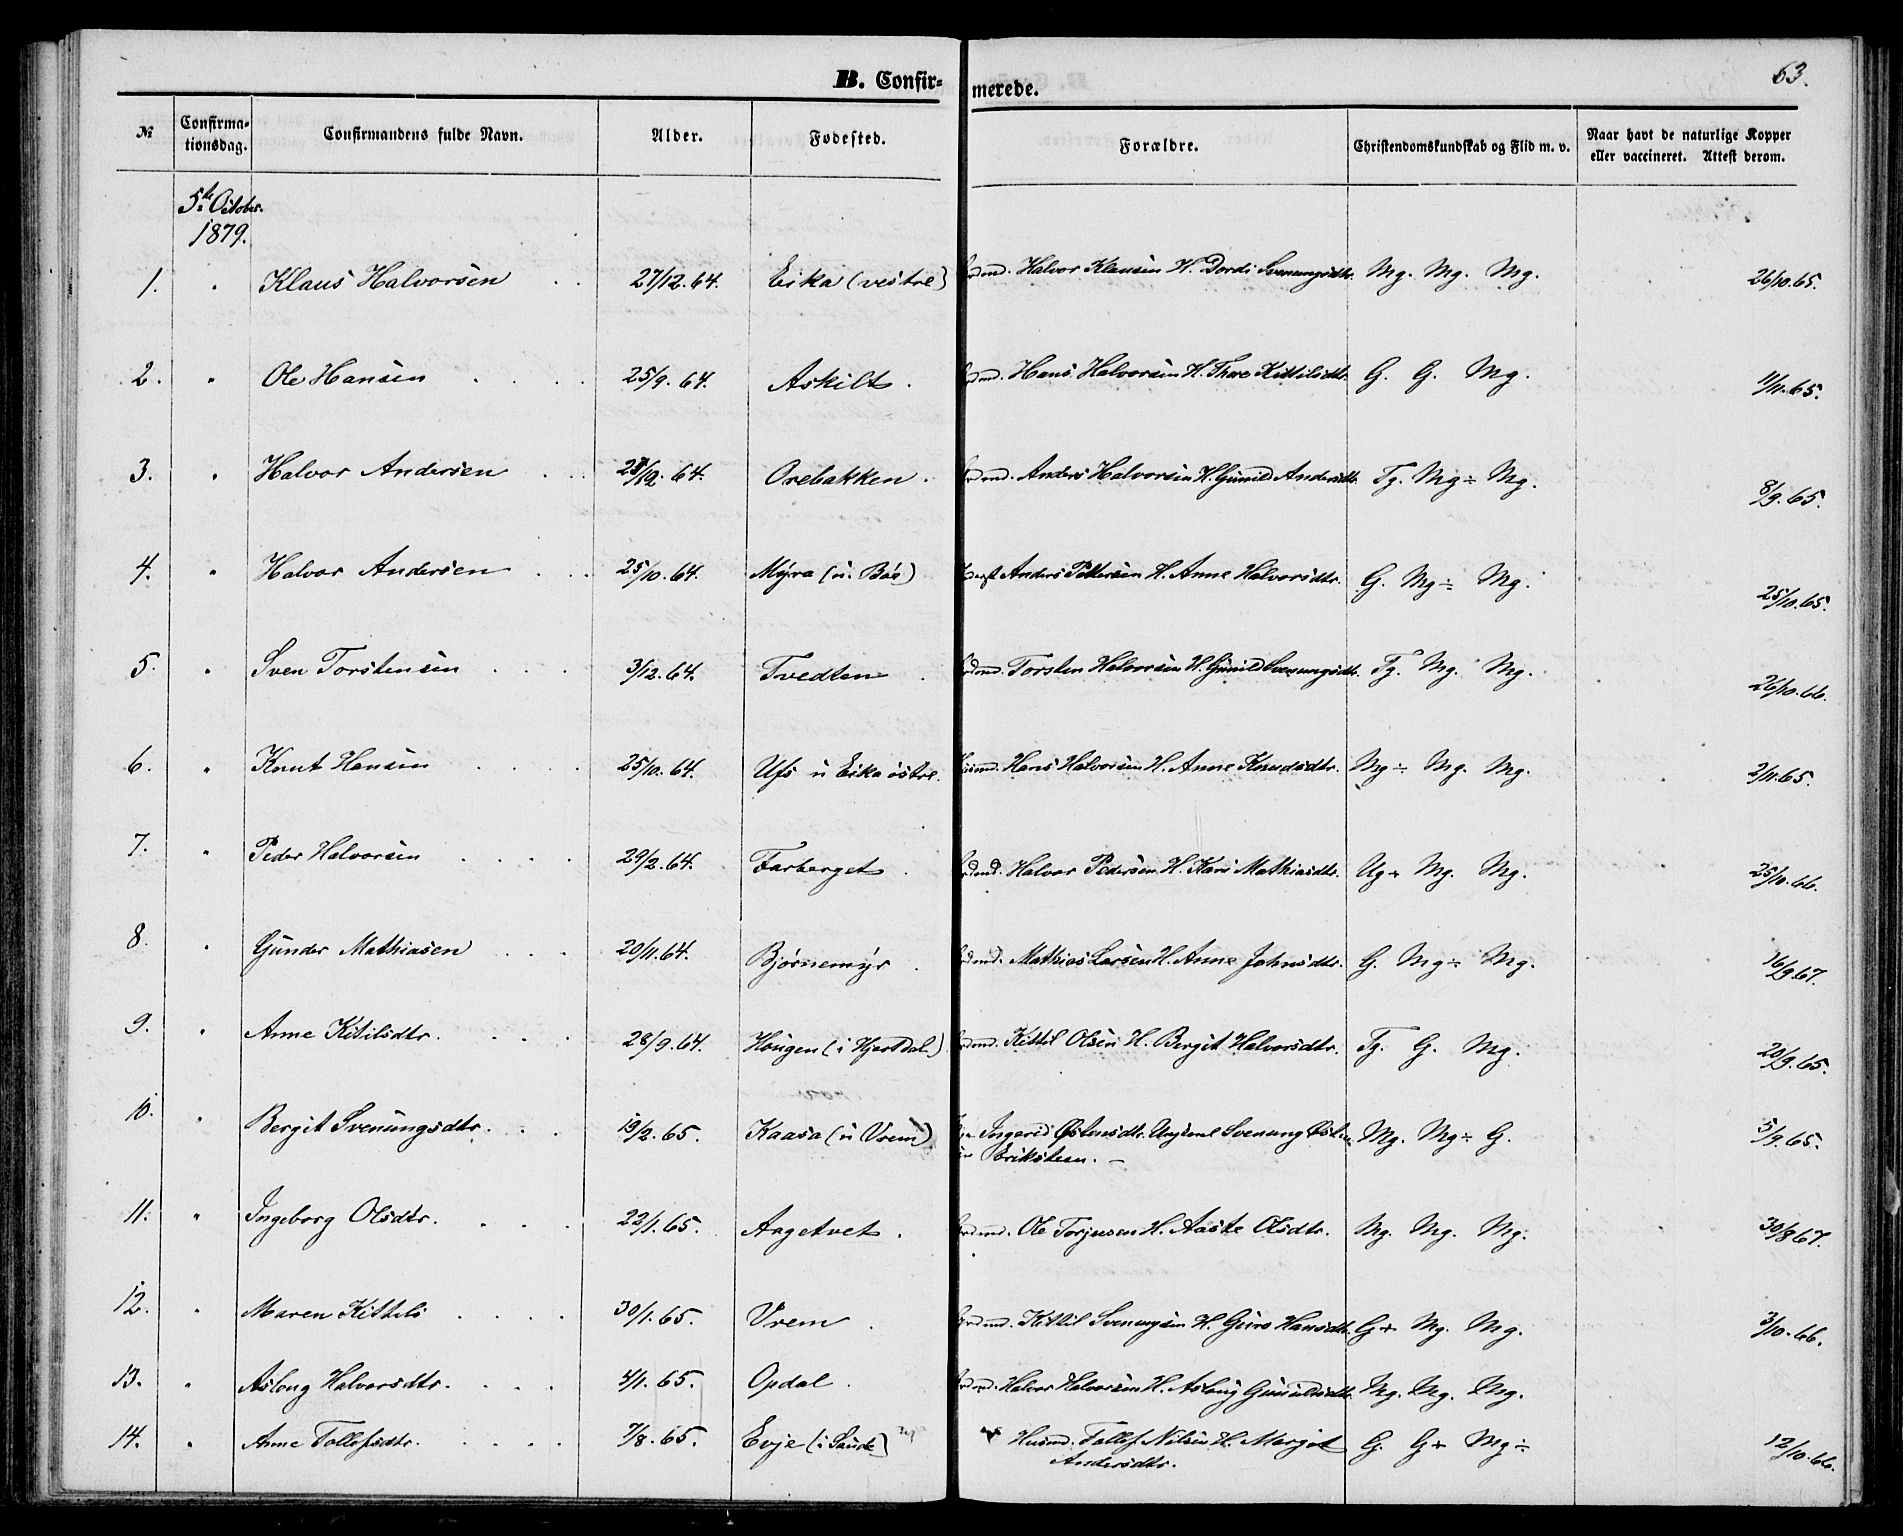 B. Confir-merede.
63.
№ Confirmationsdag. Confirmandens fulde Navn. Alder. Fødested. Forældre. Christendomskundskab og Flid m. v. Naar havt de naturlige Kopper eller vaccineret. Attest derom.
5te October
1879.
1. " Klaus Halvorsen 27/12. 64. Eika (vestre) Grdmd. Halvor Klausen H. Dordi Svenungsdtr. Mg. Mg. Mg. 26/10. 65.
2. " Ole Hansen 25/9. 64. Askilt. Grdmd. Hans Halvorsen H. Thore Kittilsdtr. G. G. Mg. 11/11. 65.
3. " Halvor Andersen /12. 64. Orebakken. Grdmd. Anders Halvorsen H. Gunild Andersdtr. Tg. Mg÷ Mg. 8/9. 65.
4. " Halvor Andersen 25/10. 64. Myra (u. Bøe) Anders Pettersen H. Anne Halvorsdtr. G. Mg÷ Mg. 25/10. 65.
5. " Sven Torstensen 3/12. 64. Tvedten. Grdmd. Torsten Halvorsen H. Gunild Svenungsdtr. Tg. Mg. Mg. 26/10. 66.
6. " Knut Hansen 25/10. 64. Ufs u Eika østre. Husmd. Hans Halvorsen H. Anne Knudsdtr. Mg÷ Mg. Mg. 2/11. 65.
7. " Peder Halvorsen 29/2. 64. Farberget. Grdmd. Halvor Pedersen H. Kari Mathiasdtr. Ug+ Mg. Mg. 25/10. 66.
8. " Gunder Mathiasen 20/11. 64. Bjørnemyr. Grdmd. Mathias Larsen H. Anne Johnsdtr. G. Mg÷ Mg. 16/9. 67.
9. " Anne Kitilsdtr. 28/9. 64. Hougen (i Hjertdal) Grdmd. Kittil Olsen H. Bergit Halvorsdtr. Tg. G. Mg. 20/9. 65.
10. " Bergit Svenungsdtr. 19/2. 65. Kaasa (u Vrem) Ingerid Østensdtr. Ungkml Svenung Østen
sen Erikstein. — Mg. Mg÷ G. 5/9. 65.
11. " Ingeborg Olsdtr. 22/1. 65. Aagetvet. Grdmd. Ole Torjusen H. Aaste Olsdtr. Mg. Mg. Mg. 30/8 67.
12. " Maren Kittils 30/1. 65. Vrem. Grdmd. Kittil Svenungsen H. Guro Hansdtr. G+ Mg. Mg. 3/10. 66.
13. " Aslaug Halvorsdtr. 4/1. 65. Opdal. Grdmd. Halvor Halvorsen H. Aslaug Gunuldsdtr. Mg. Mg. Mg.
14. " Anne Tollefsdtr. 7/8. 65. Evje (i Saude) Husmd. Tollef Nilsen H. Margit
Andersdtr. G. G+ Mg÷ 12/10. 66.